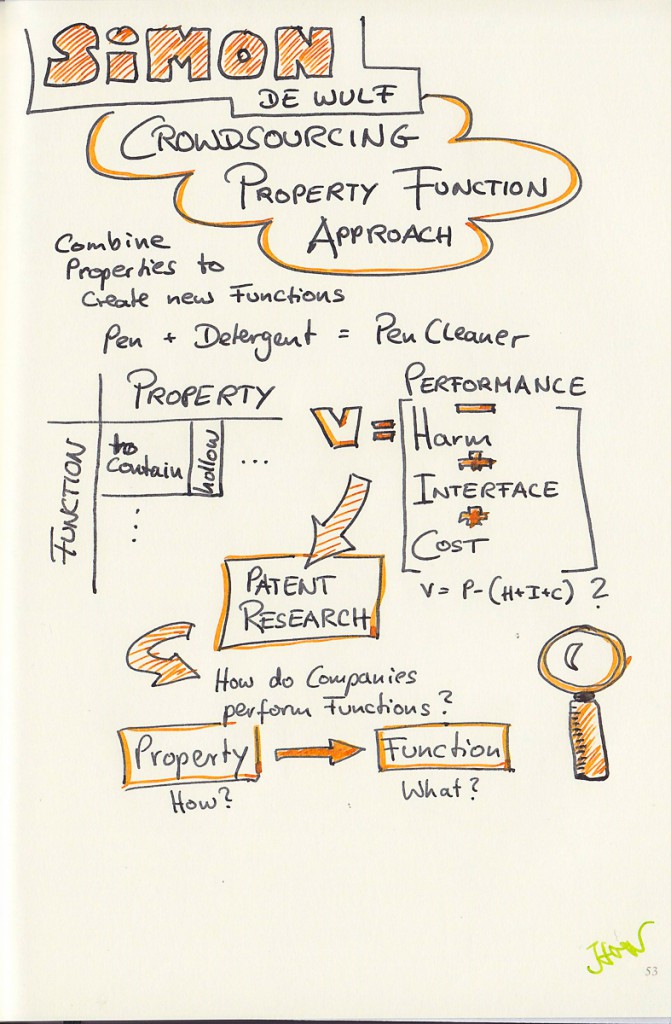 SiMON
DE WULF
CROWDSOURCING
PROPERTY FUNCTION
APPROACH
Combine
Properties to
Create new Functions
Pen + Detergent = Pen Cleaner
PROPERTY
FUNCTION
to
Contain
hollow
...
...
V =
PERFORMANCE
-
Harm
+
INTERFACE
+
COST
V = P-(H+I+C) ?
PATENT
RESEARCH
How do Companies
perform Functions?
Property
How?
Function
What?
53